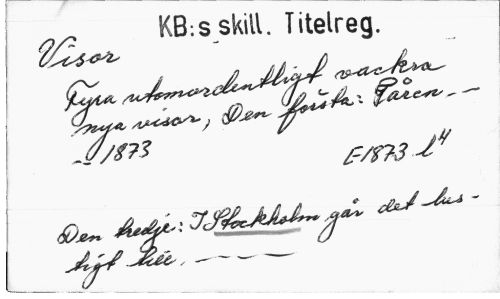 KB:s skill. Titelreg.
Visor
Fyra utomordentligt vackra
nya visor, Den första: Tåren --
-- 1873
E1873 l4
Den tredje: I Stockholm går det lus-
tigt till. ---